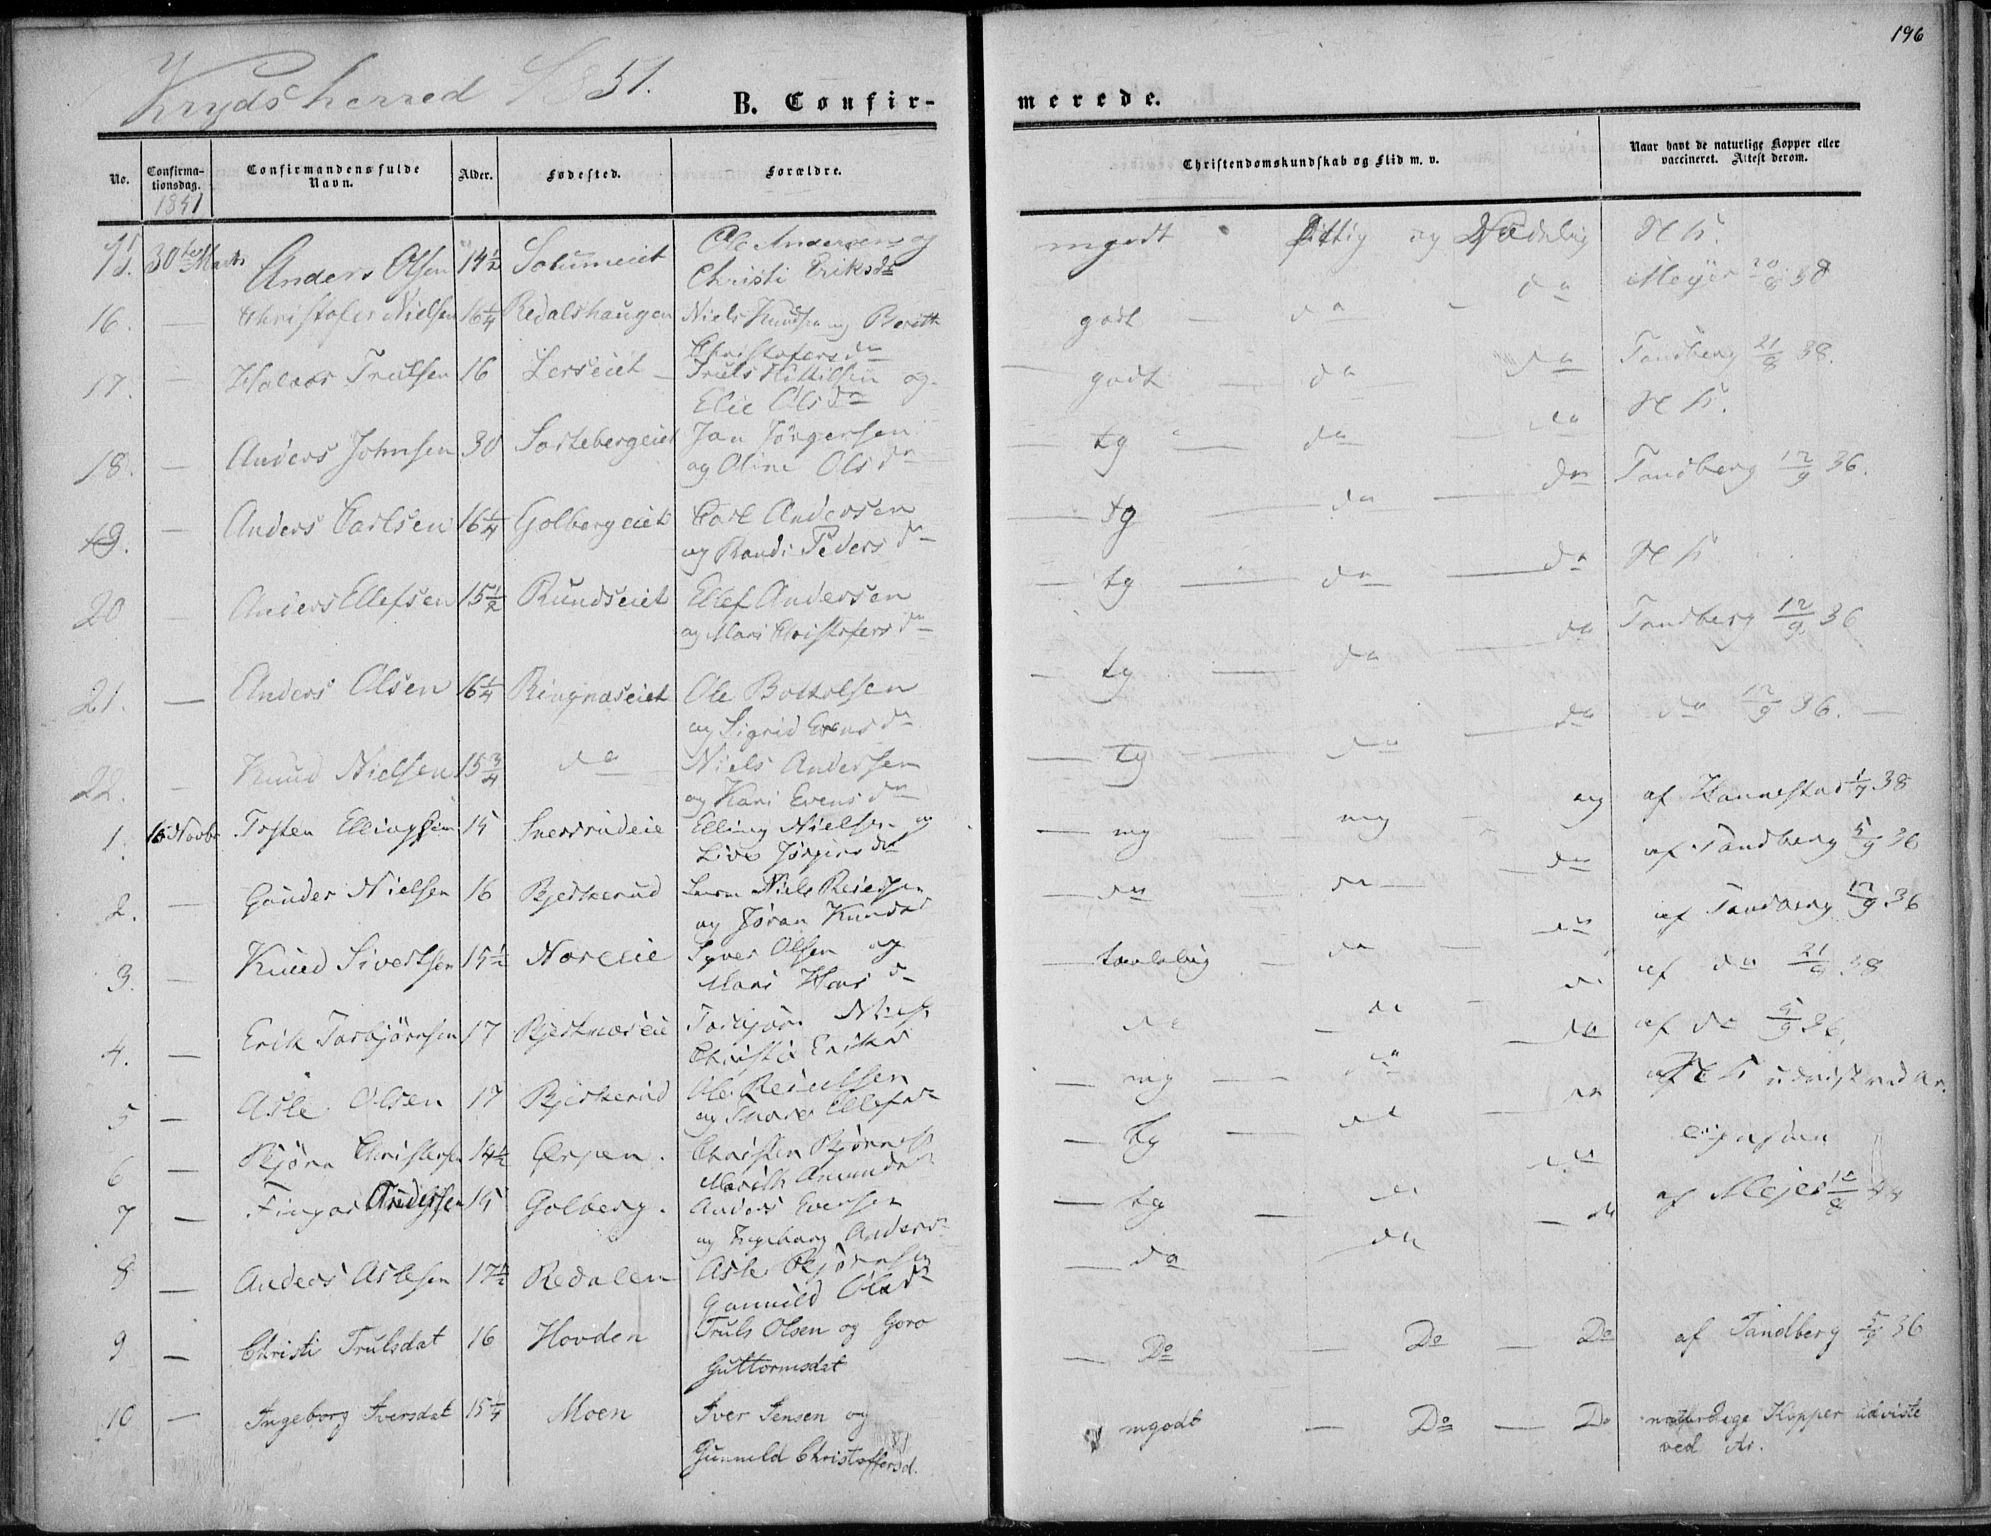 196
Krydsherred 1851.
B. Confir-
merede.
No.
Confirma-
tionsdag.
1851
Confirmandens fulde
Navn.
Alder.
Fødested.
Forældre.
Christendomskundskab og Flid m. v.
Naar havt de naturlige Kopper eller
vaccineret. Attest derom.
15. 30te Marts Anders Olsen 14½ Ole Andersen og
Christi Eriksdr
mgodt flittig og H K.
16. — Christofer Nielsen 16¼ Redalshaugen Niels Knudsen og Berith
Christofersdr
godt — do — do Mejer 20/8 38
17. — Halvor Trulsen 16 Lerseiet Truls Kittilsen og
Elie Olsdr
godt — do — do Tandberg 21/8 38.
18. — Anders Johnsen 30 Sortebergeiet Jon Jörgersen
og Oline Olsdr
tg — do — do H K.
19. — Anders Carlsen 16¼ Golbergeiet Carl Andersen
og Randi Pedersdr
tg — do — do Tandberg 12/9 36.
20 Anders Ellefsen 15½ Rundseiet Ellef Andersen
og Mari Christofersdr
tg — do — do H K
21. — Anders Olsen 16¼ Ringnæseiet Ole Bottolsen
og Sigrid Evensdr
tg — do — do Tandberg 12/9 36
22. — Knud Nielsen 15¾ do Niels Andersen
og Kari Evensdr
tg — do — do do 12/9 36.
1. 16 Novbr Tosten Ellingsen 15 Snersrudeie Elling Nielsen og
Live Jörgensdr
mg — mg — mg af Hannestad 1/7 38
2. — Gunder Nielsen 16 Bjerkerud Niels Reiersen
og Jöran Knudsd
do do — do af Tandberg 5/9 36
3. — Knud Sivertsen 15½ Noreeie Syver Olsen og
Mari Hansdr
taalelig — do — do af Tandberg 12/9 36
4. — Erik Torbjörnsen 17 Bjerknæseie Torbjörn Niels.
Christie Eriksd
do — do — do af do 21/9 38
5 — Asle Olsen 17 Bjerkerud Ole Reiersen
og Ellefsdr
mg — do — do af do 5/9 36.
6 — Björn Christensen 14½ Ørpen. Christen Bjørnsen
Marith Amundsd
tg — do — do af H K udvist ved Ar.
7 — Fingar Andersen 15 Golberg. Anders Evensen
og Ingeborg Andersdr
tg — do — do
8 — Anders Aslesen 17½ Redalen Asle Bjørnsen
Gunnild Olsdr
do do — do af Mejer
9 — Christi Trulsdat 16 Hovden Truls Olsen og Goro
Guttormsdat
— Do — Do — Do af Tandberg 5/9 36
10 — Ingeborg Iversdat 15¼ Moen Iver Jensen og
Gunnild Christoffersd.
mgodt — Do — Do naturlige Kopper udviste
ved Ar.